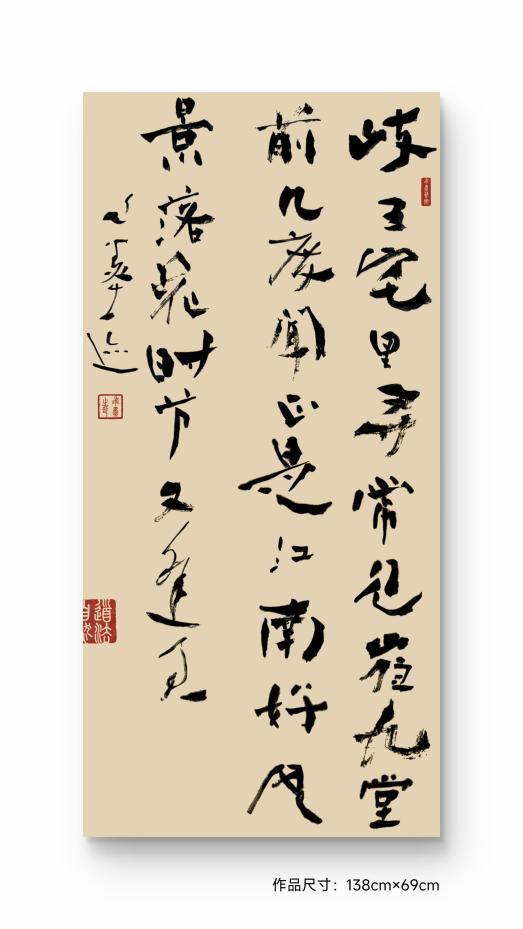 岐王宅里寻常见崔九堂
前几度闻正是江南好风
景落花时节又逢君
道法自然
作品尺寸：138cm×69cm